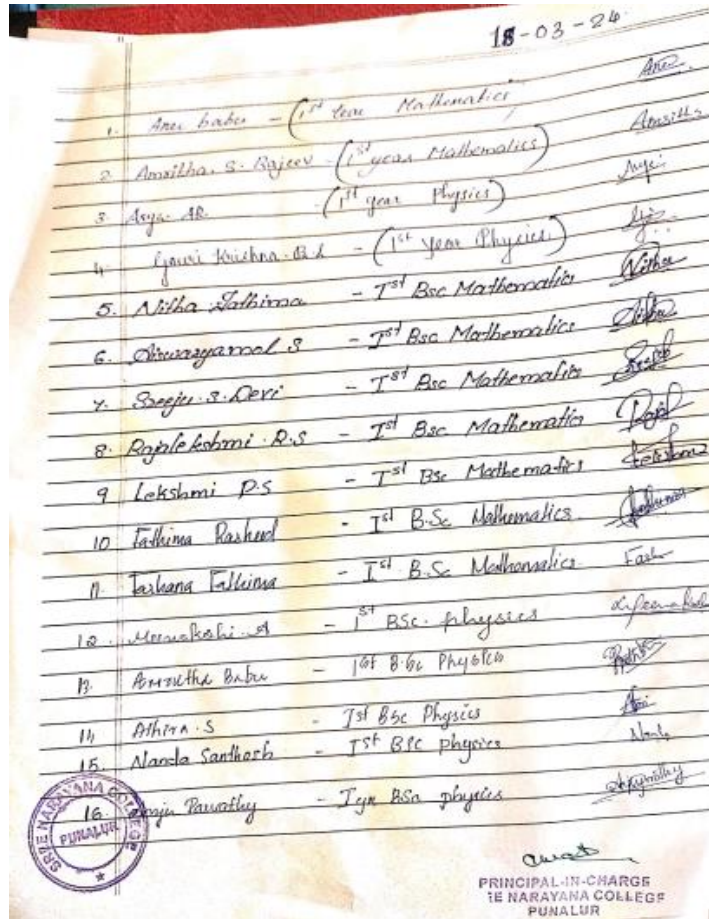 18-03-24
1. Anee babu - (1st Year Mathematics) Anee
2. Amritha. S. Rajeev - (1st year Mathematics)
3. Arya. AR. - (1st year Physics) Arya
4. Gouri Krishna. - (1st Year Physics)
5. Nitha Fathima - Ist Bsc Mathematics Nitha
6. Aiswaryamol S - Ist Bsc Mathematics
7. Sreeju. S. Devi - Ist Bsc Mathematics
8. Rajalekshmi. R.S - Ist Bsc Mathematics
9 Lekshmi P.S - Ist Bsc Mathematics
10 Fathima Rasheed - Ist B.Sc Mathematics
11. Farhana Fathima - Ist B.Sc Mathematics Farh
12. Meenakshi. A - 1st BSc. physics
13. Amrutha Babu - 1st B.Sc Physics
14 Athira. S - Ist Bsc Physics
15. Nanda Santhosh - Ist BSc physics
16. Parvathy - BSc physics
SREE NARAYANA COLLEGE
PUNALUR
PRINCIPAL-IN-CHARGE
NARAYANA COLLEGE
PUNALUR